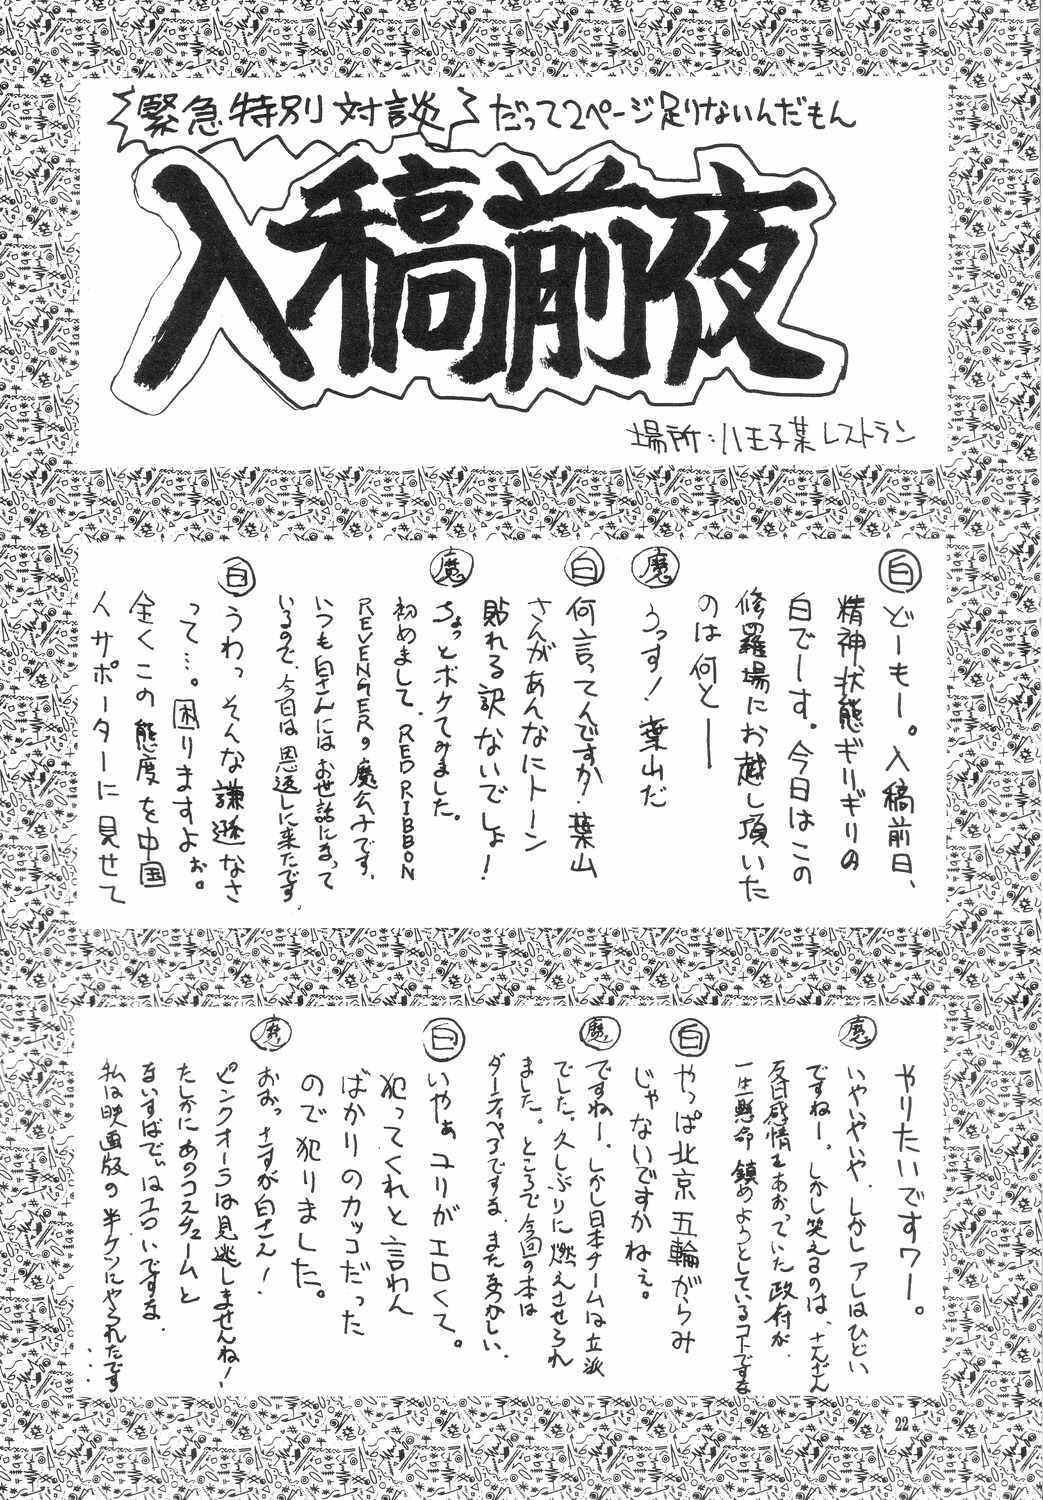 緊急特別対談 だって2ページ足りないんだもん
入稿前夜
場所：八王子某レストラン
白 どーもー。入稿前日、
精神状態ギリギリの
白でーす。今日はこの
修羅場にお越し頂いた
のは何とー
魔 うっす！葉山だ
白 何言ってんですか！葉山
さんがあんなにトーン
貼れる訳ないでしょ！
魔 ちょっとボケてみました。
初めまして、RED RIBBON
REVENGERの魔公子です。
いつも白さんにはお世話になって
いるので、今日は恩返しに来たです。
白 うわっ そんな謙遜なさ
って…。困りますよぉ。
全くこの態度を中国
人サポーターに見せて
やりたいですワー。
魔 いやいやいや、しかしアレはひどい
ですねー。しかし笑えるのは、さんざん
反日感情をあおっていた政府が、
一生懸命鎮めようとしているコトですな
白 やっぱ北京五輪がらみ
じゃないですかねぇ。
魔 ですねー。しかし日本チームは立派
でした。久しぶりに燃えさせられ
ました。ところで今回の本は
ダーティペアですな。またなつかしい。
白 いやぁ ユリがエロくて。
犯ってくれと言わん
ばかりのカッコだった
ので犯りました。
魔 おおっ さすが白さん！
ピンクオーラは見逃しませんね！
たしかにあのコスチュームと
ないすばでぃはエロいですな。
私は映画版の半ケツにやられたです
…
22